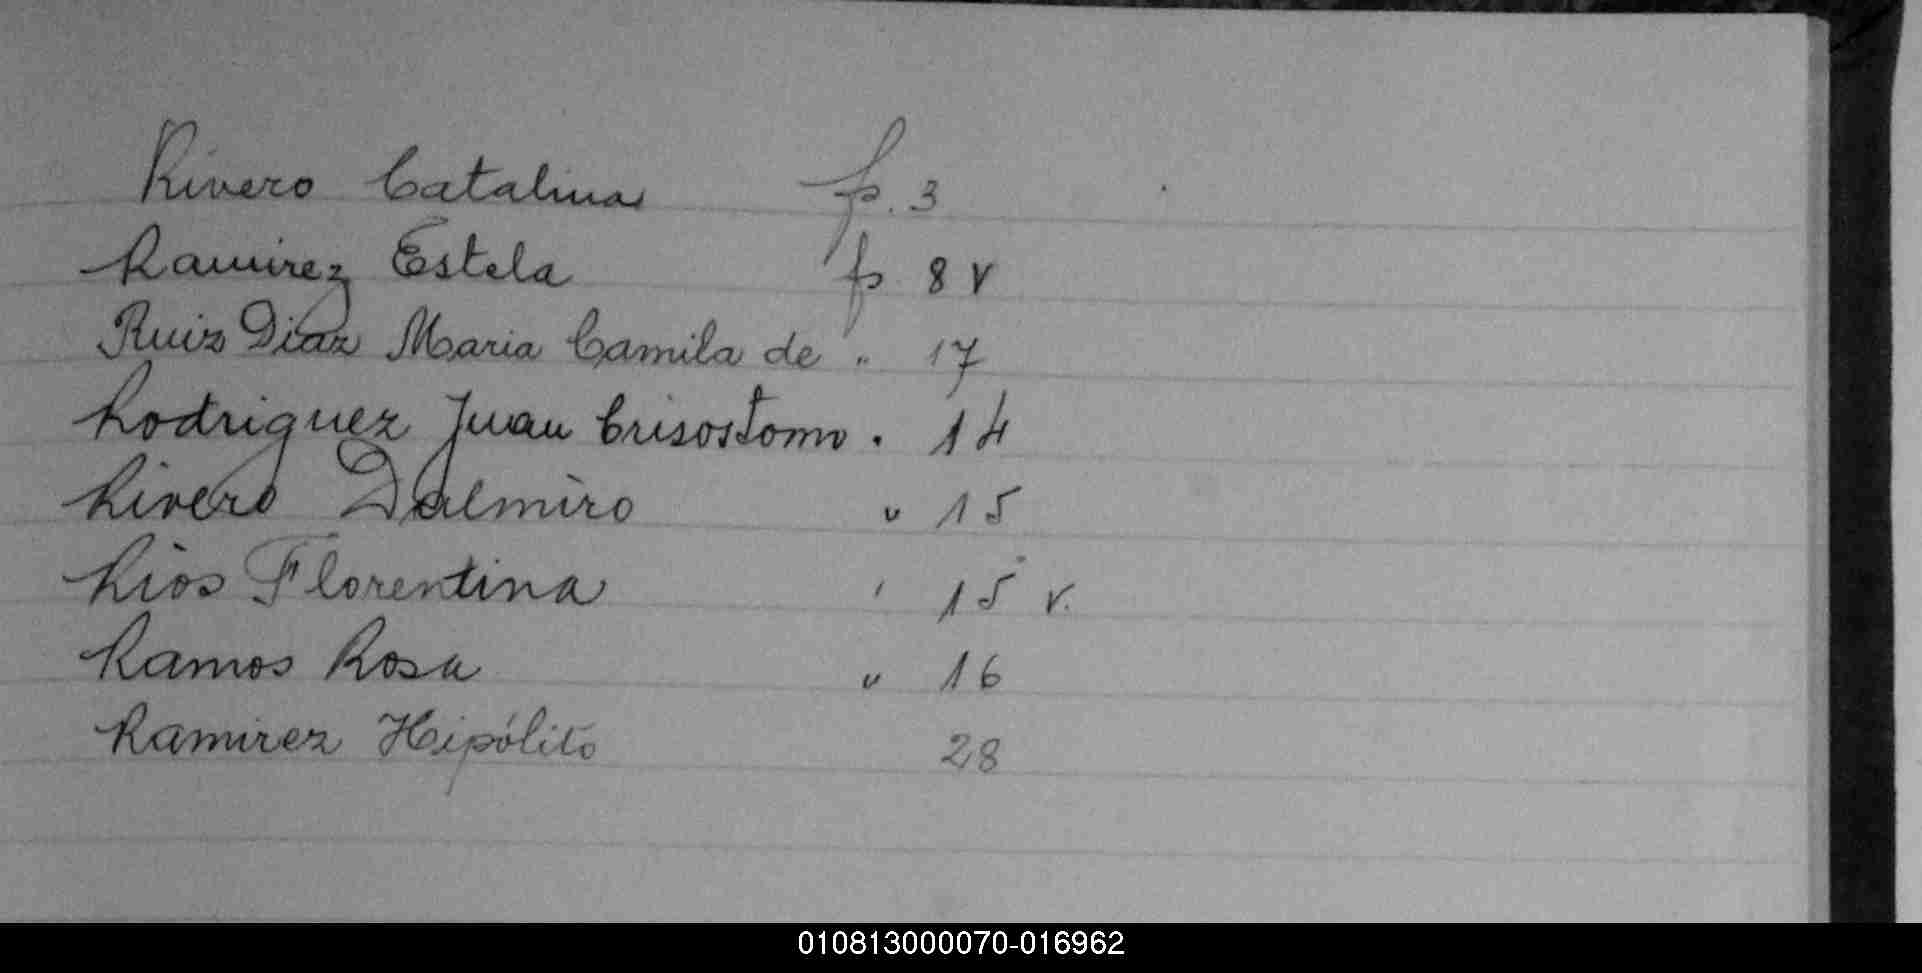 Rivero Catalina fs. 3
Ramirez Estela fs. 8 v
Ruiz Diaz Maria Camila de " 17
Rodriguez Juan Crisostomo . 14
Rivero Dalmiro " 15
Rios Florentina ' 15 v.
Ramos Rosa " 16
Ramirez Hipólito 28
010813000070-016962